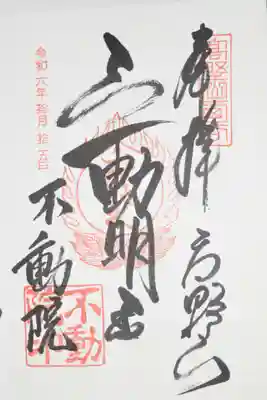 奉拝
高野山
三動明王
不動院
令和六年拾月拾五日
不動院印